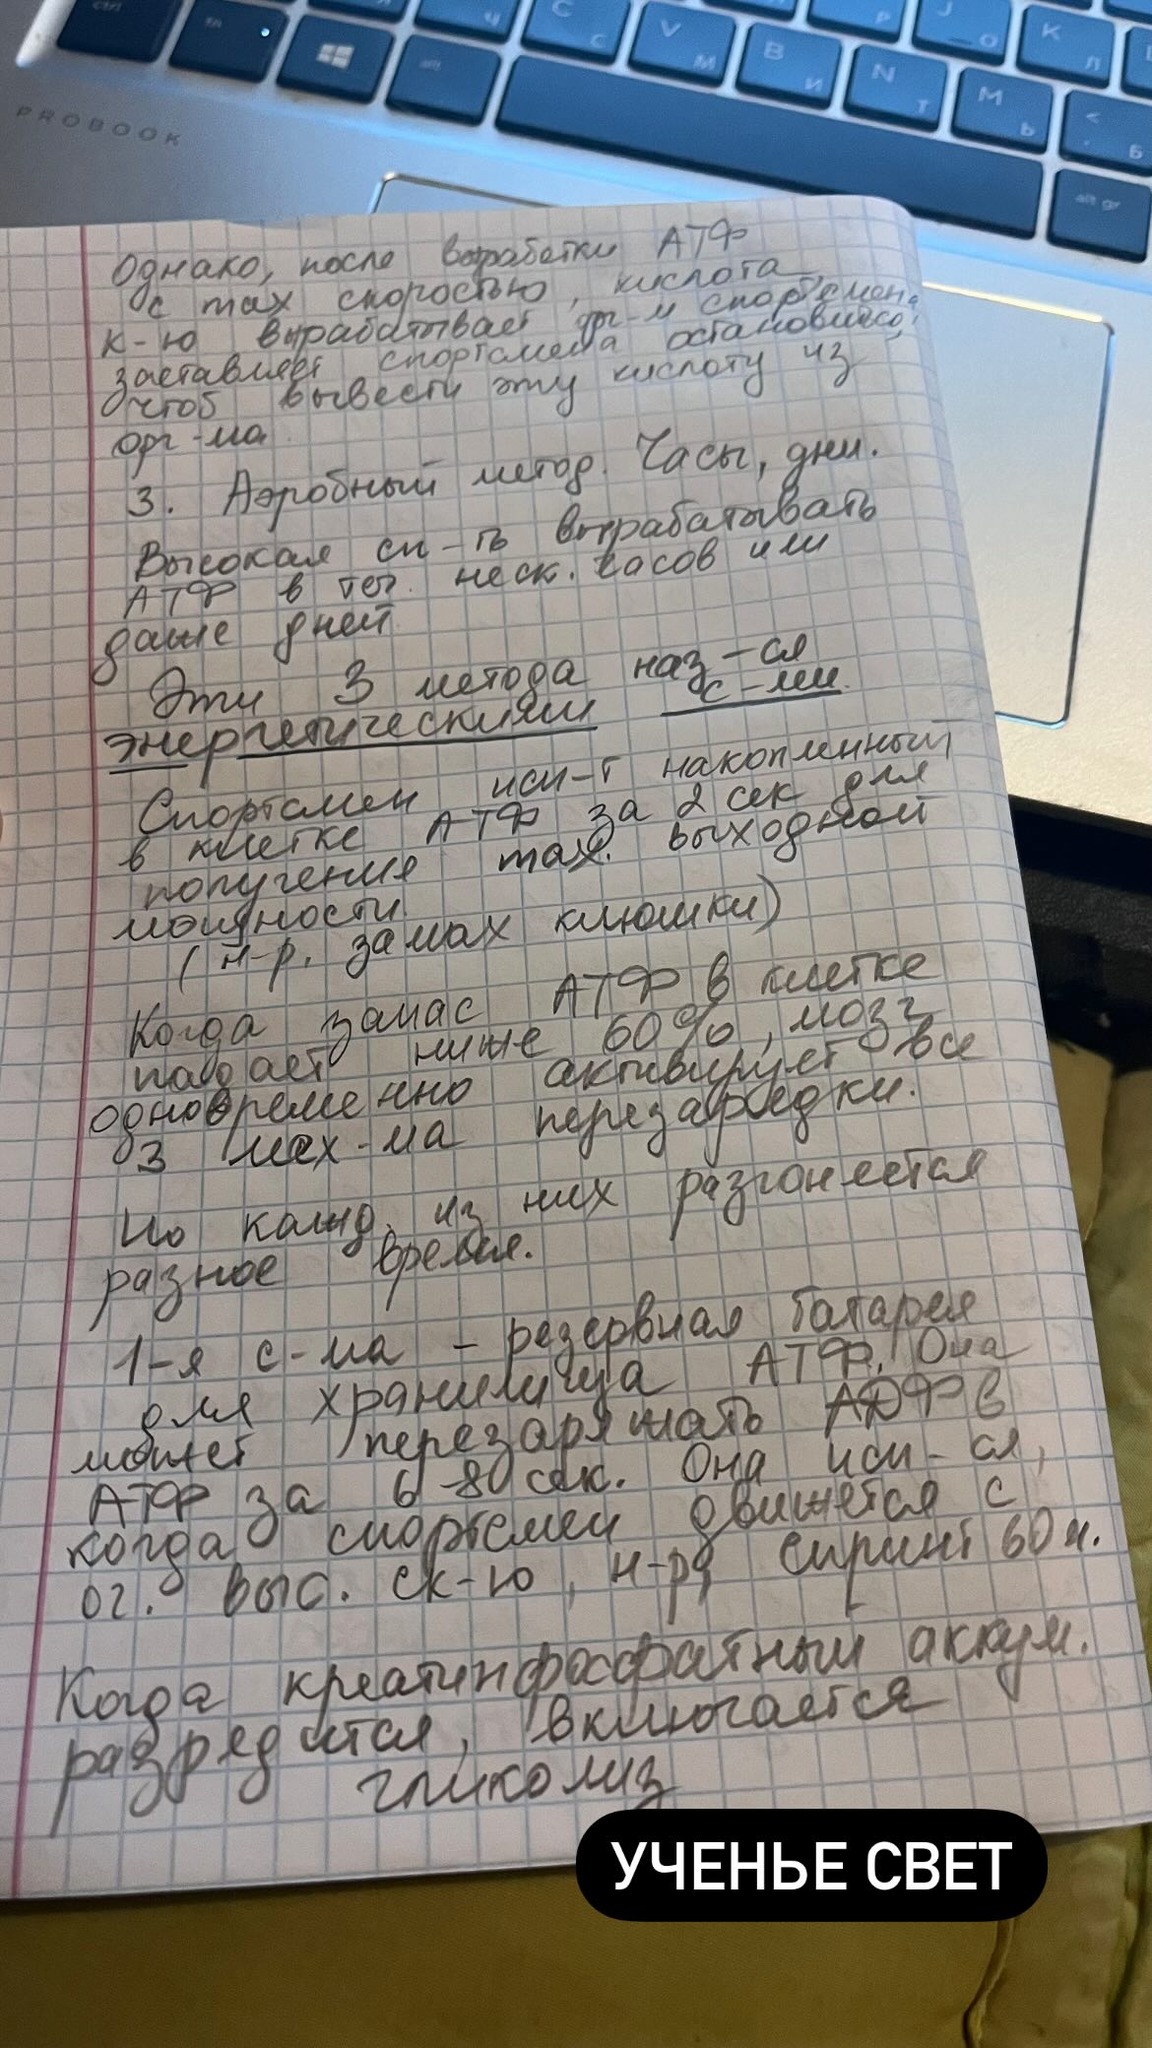 ctrl
fn
alt
C
С
V
М
B
И
N
Т
M
Ь
J
О
K
Л
<
Б
alt gr
PROBOOK
Однако, после выработки АТФ
с max скоростью, кислота,
к-ю вырабатывает орг-м спортсмена,
заставляет спортсмена остановиться,
чтоб вывести эту кислоту из
орг-ма.
3. Аэробный метод. Часы, дни.
Высокая сп-ть вырабатывать
АТФ в теч. неск. часов или
даже дней.
Эти 3 метода наз-ся
энергетическими с-ми.
Спортсмен исп-т накопленный
в клетке АТФ за 2 сек для
получения max. выходной
мощности.
(н-р. замах клюшки)
Когда запас АТФ в клетке
падает ниже 60%, мозг
одновременно активирует все
3 мех-ма перезарядки.
Но кажд. из них разгоняется
разное время.
1-я с-ма – резервная батарея
для хранилища АТФ. Она
может перезаряжать АДФ в
АТФ за 6-80 сек. Она исп-ся,
когда спортсмен движется с
оч. выс. ск-ю, н-р, спринт 60 м.
Когда креатинфосфатный аккум.
разрядится, включается
гликолиз
УЧЕНЬЕ СВЕТ